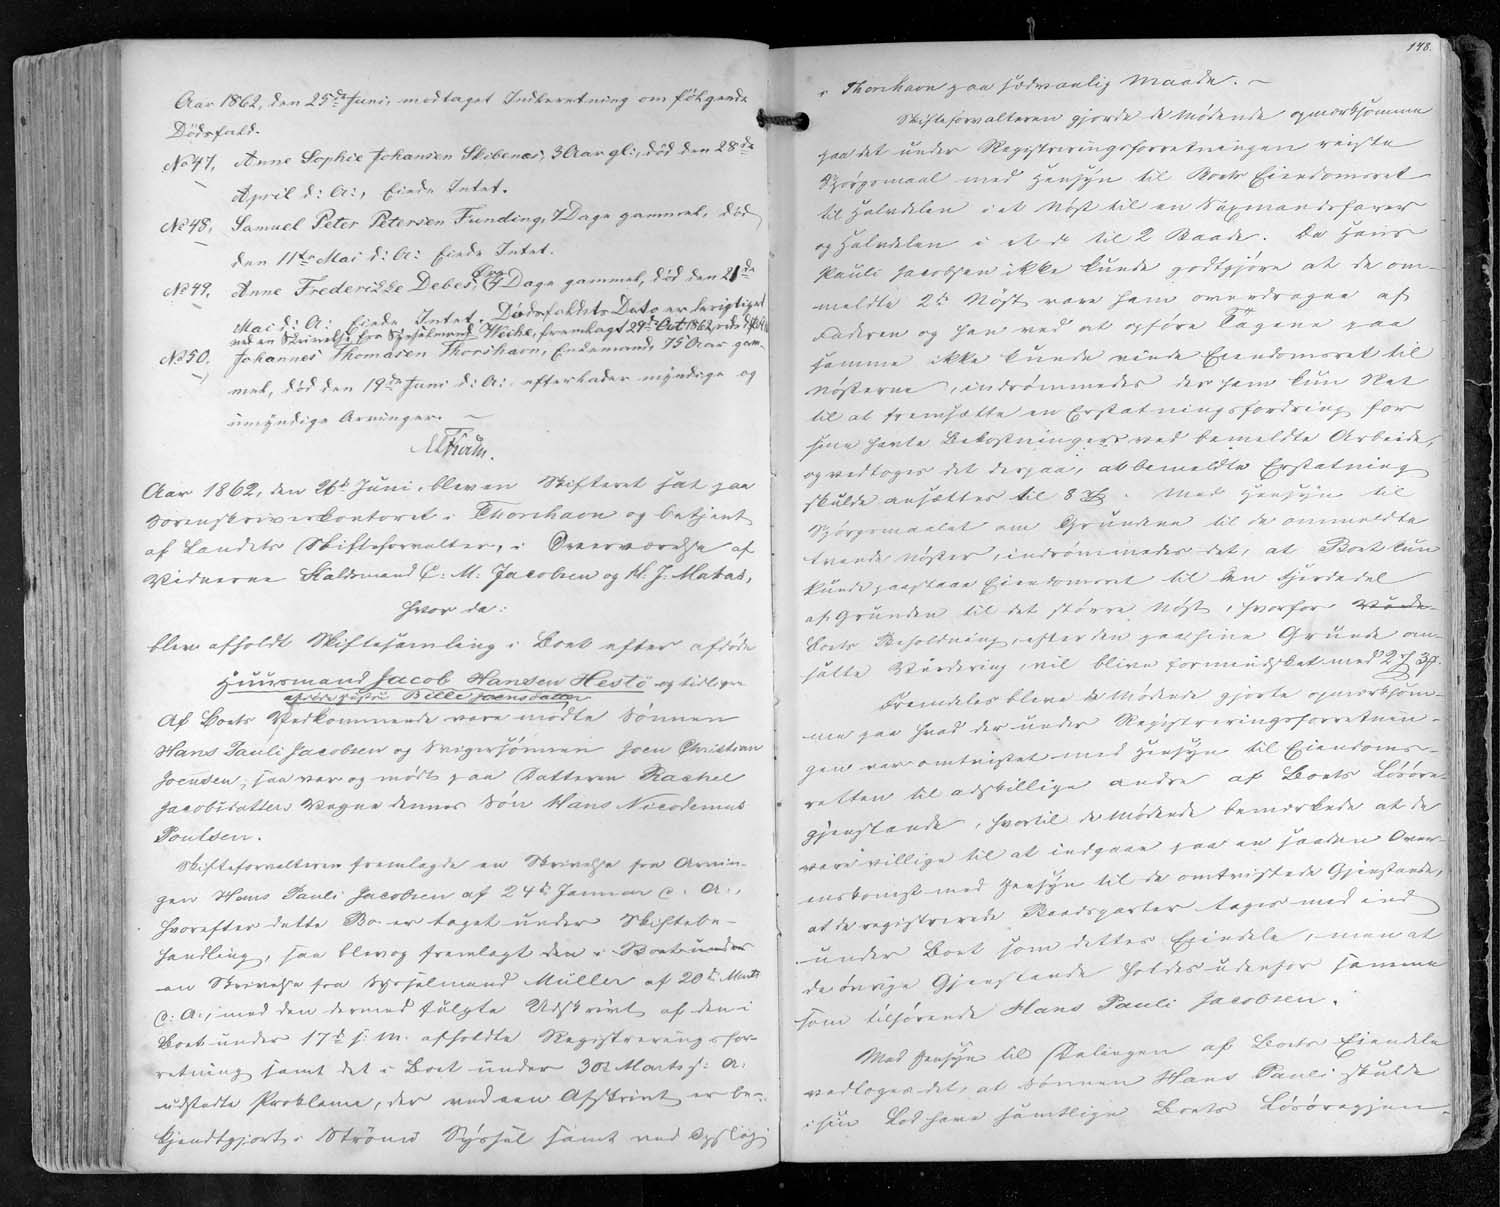 Aar 1862, den 25de Juni, modtaget Indberetning om følgende
Dødsfald.
No 47, Anne Sophie Johansen Skibenæs, 3 Aar gl:, død den 28de
April d: A:, Eiede Intet.
No 48, Samuel Peter Petersen Funding, 7 Dage gammel, død
den 11te Mai d: A: Eiede Intet.
No 49, Anne Frederikke Debes, Dage gammel, død den 21de
Mai d: A: Eiede Intet. Dødsfaldets Dato er berigtiget
ved en Skrivelse fra Sysselmand Weihe, fremlagt 29de Oct 1862,
No 50, Johannes Thomasen Thorshavn, Enkemand, 75 Aar gam-
mel, død den 19de Juni d: A: efterlader myndige og
umyndige Arvinger.
Aar 1862, den 26de Juni, blev en Skifteret sat paa
Sorenskriverkontoret i Thorshavn og betjent
af Landets Skifteforvalter, i Overværelse af
Vidnerne Haldsmand C: M: Jacobsen og H. J. Matras,
hvor da:
blev afholdt Skiftesamling i Boet efter afdøde
Huusmand Jacob Hansen Hestø og tidligere
afdøde Hustru Bille Joensdatter
Af Boets Vedkommende vare mødte Sønnen
Hans Pauli Jacobsen og Svigersønnen Joen Christian
Joensen, saa var og mødt paa Datteren Rachel
Jacobsdatters Vegne dennes Søn Hans Nicodemus
Poulsen.
Skifteforvalteren fremlagde en Skrivelse fra Arvin-
gen Hans Pauli Jacobsen af 24de Januar c: A:,
hvorefter dette Bo er taget under Skiftebe-
handling, saa blev og fremlagt den i Boet under
en Skrivelse fra Sysselmand Müller af 20de Marts
c: A:, med den dermed fulgte Udskrivt af den i
Boet under 17de s: M. afholdte Registreringsfor-
retning samt det i Boet under 30te Marts s: A:
udstedte Proklama, der ved en Afskrivt er be-
kjendtgjort i Strømø Syssel samt ved Opslag
148.
i Thorshavn paa sædvanlig Maade.
Skifteforvalteren gjorde de Mødende opmærksomme
paa det under Registreringsforretningen reiste
Spørgsmaal med Hensyn til Boets Eiendomsret
til Halvdelen i et Nøst til en Sexmandsfarer
og Halvdelen i et do til 2 Baade. Da Hans
Pauli Jacobsen ikke kunde godtgjøre at de om-
meldte 2de Nøst vare ham overdragne af
Faderen og han ved at opføre Tagene paa
samme ikke kunde vinde Eiendomsret til
Nøsterne, indrømmedes der ham kun Ret
til at fremsætte en Erstatningsfordring for
sine havte Bekostninger ved bemeldte Arbeide,
og vedtoges det derpaa, at bemeldte Erstatning
skulde ansættes til 8 . Med Hensyn til
Spørgsmaalet om Grunden til de ommeldte
tvende Nøster, indrømmedes det, at Boet kun
kunde paastaae Eiendomsret til den Fjerdedel
af Grunden til det større Nøst, hvorfor
Boets Beholdning, efter den paa sine Grunde an-
satte Vurdering, vil blive formindsket med 2 3
Fremdeles bleve de Mødende gjorte opmærksom-
me paa hvad der under Registreringsforretnin-
gen var omtvistet med Hensyn til Eiendoms-
retten til adskillige andre af Boets Løsøre-
gjenstande, hvortil de Mødende bemærkede at de
vare villige til at indgaae paa en saadan Over-
enskomst med Hensyn til de omtvistede Gjenstande,
at de registrerede Baadsparter tages med ind
under Boet som dettes Eiendele, men at
de øvrige Gjenstande holdes udenfor samme
som tilhørende Hans Pauli Jacobsen.
Med Hensyn til Delingen af Boets Eiendele
vedtoges det, at Sønnen Hans Pauli skulde
i sin Lod have samtlige Boets Løsøregjen-